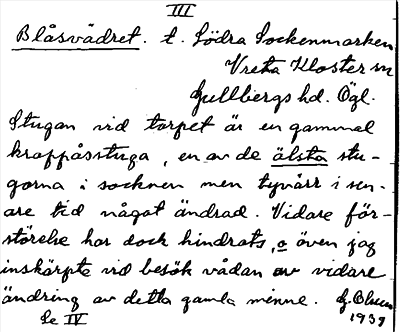 III
Blåsvädret. t. Södra Sockenmarken
Vreta Kloster sn
Gullbergs hd. Ögl.
Stugan vid torpet är en gammal
knoppåsstuga, en av de älsta stu-
gorna i socknen men tyvärr i sen-
are tid något ändrad. Vidare för-
störelse har dock hindrats, o även jag
inskärpte vid besök vådan av vidare
ändring av detta gamla minne.
Se IV 1939